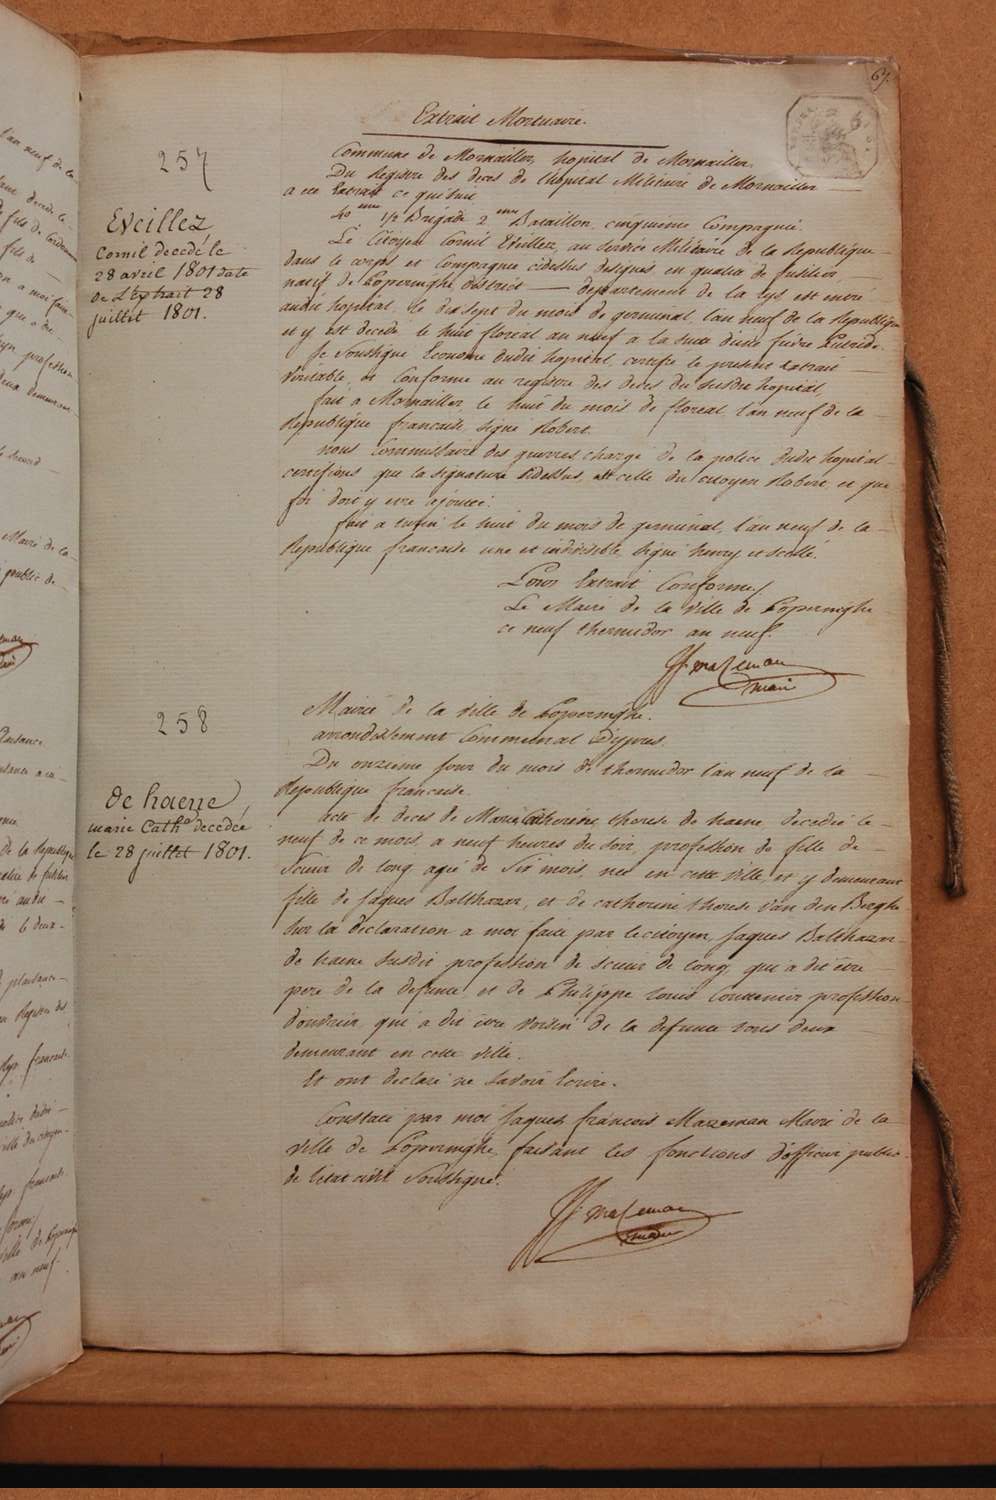 67.
Extrait Mortuaire.
257
Eveillez
Cornil decedé le
28 avril 1801 date
de L'extrait 28
juillet 1801.
Commune de Mornaillez, hopital de Mornaillez
Du Registre des deces de l'hopital Militaire de Mornaillez
a ete Extrait ce qui suit
40 eme 1/2 Brigade 2 eme Bataillon, cinquieme Compagnie.
Le Citoyen Cornil Eveillez, au service Militaire de la Republique
dans le corps et Compagnie cidessus designés en qualité de fusilier
natif de Poperinghe district — departement de la Lys est entré
audit hopital, le dix sept du mois de germinal, l'an neuf de la Republique
et y est decede le huit floreal an neuf a la suite d'une fievre Putride.
Je Soussigné Econome dudit hopital, certifie le present Extrait
Veritable, et Conforme au registre des deces du susdit hopital,
fait a Mornaillez le huit du mois de floreal l'an neuf de la
Republique francaise, signé Robert.
nous Commissaire des guerres chargé de la police dudit hopital
certifions que la signature cidessus, est celle du citoyen Robert et que
foi doit y etre ajoutée.
fait a turin le huit du mois de germinal, l'an neuf de la
Republique francaise une et indivisible, signé henry et scellé.
Pour Extrait Conforme
Le Maire de la ville de Poperinghe
ce neuf thermidor an neuf.
J f. mazeman
maire
258
De haene
marie Cath a decedée
le 28 juillet 1801.
Mairie de la ville de Poperinghe.
arrondissement Communal d'ypres.
Du onzieme jour du mois de thermidor l'an neuf de la
Republique francaise.
acte de deces de Marie Catherine therese de haene, decedée le
neuf de ce mois, a neuf heures du soir, profession de fille de
Scieur de long, agée de Six mois, née en cette ville, et y demeurant
fille de Jaques Balthazar, et de catherine therese Van den Berghe
Sur la declaration a moi faite par le citoyen Jaques Balthazar
de haene susdit profession de scieur de long, qui a dit être
pere de la defunte, et de Philippe Louis Couttenier profession
d'ouvrier, qui a dit être Voisin de la defunte tous deux
demeurant en cette ville.
Et ont declaré ne Savoir Ecrire.
Constaté par moi Jaques francois Mazeman Maire de la
Ville de Poperinghe, faisant les fonctions d'officier public
de l'etat civil Soussigné.
J f. mazeman
maire